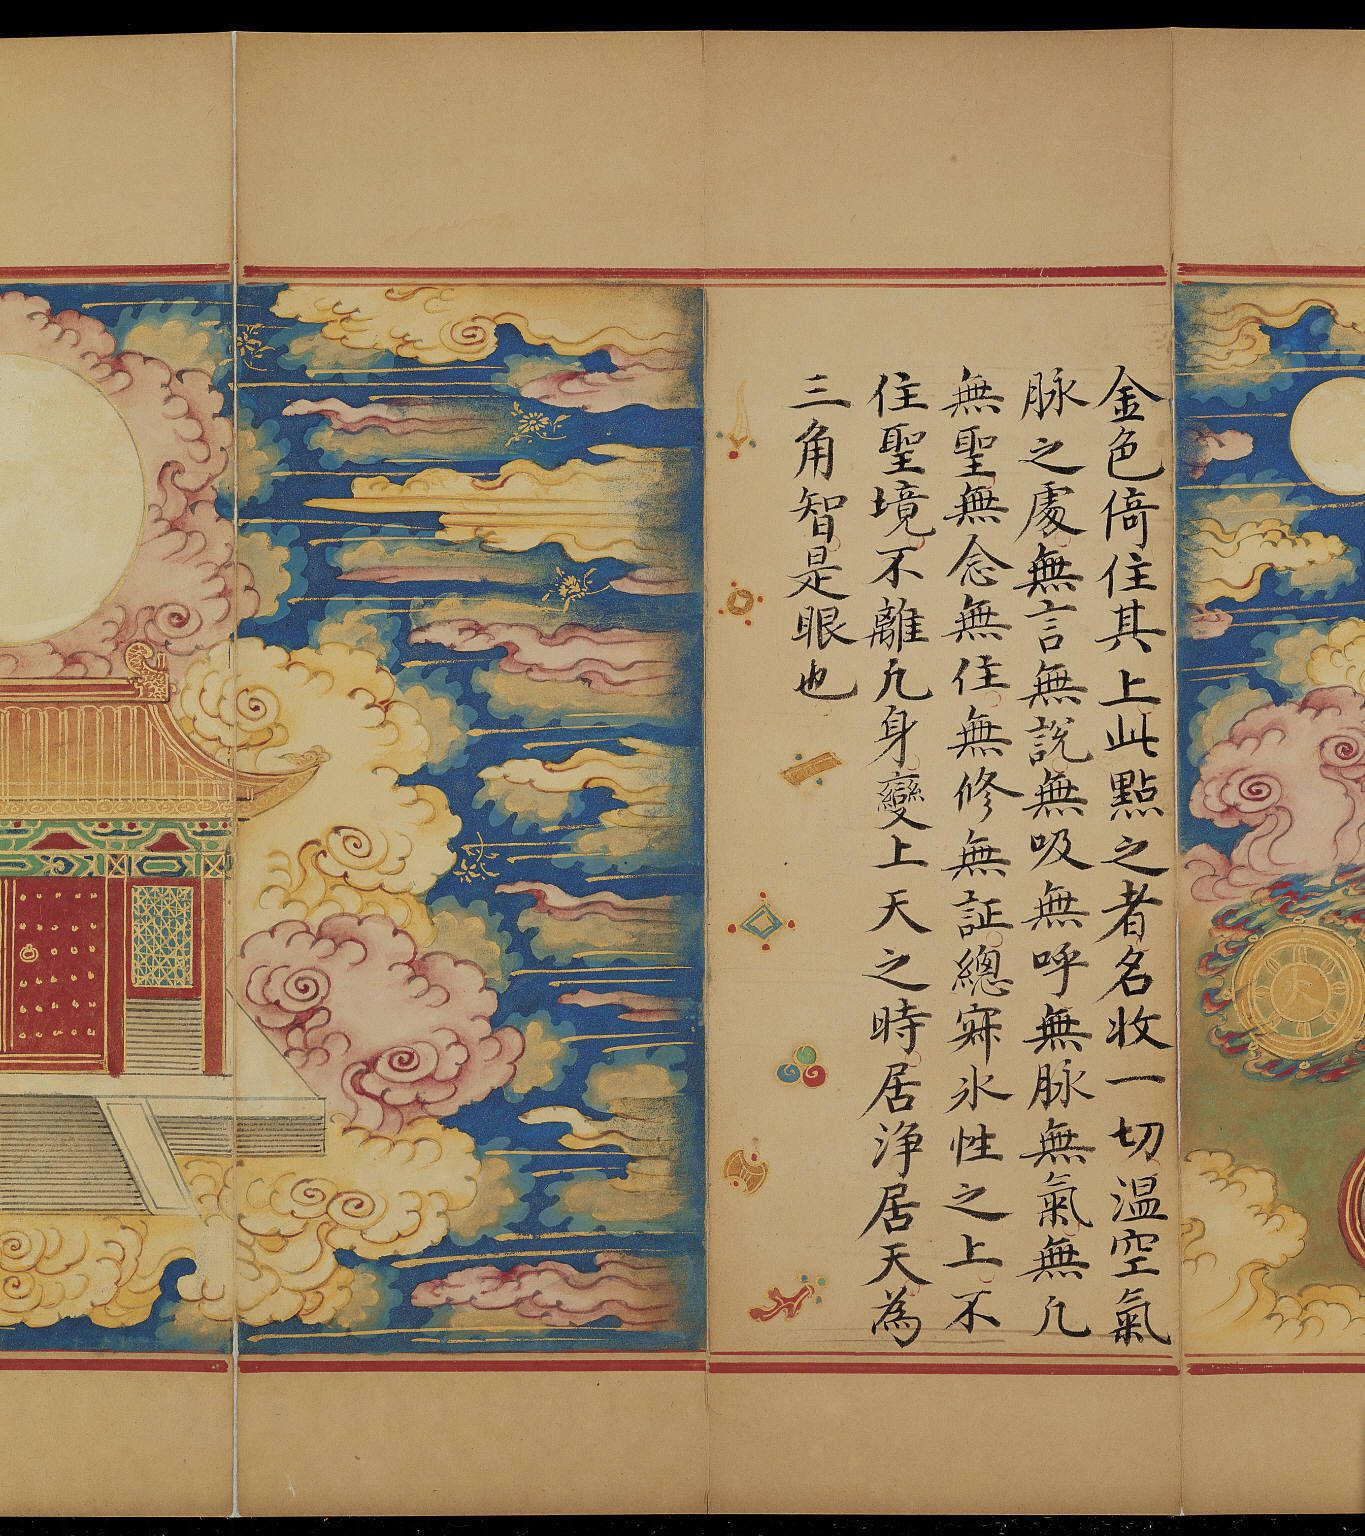 金色倚住其上此點之者名收一切温空氣
脉之處無言無說無吸無呼無脉無氣無凢
無聖無念無住無修無証總寂氷性之上不
住聖境不離凢身變上天之時居浄居天為
三角智是眼也